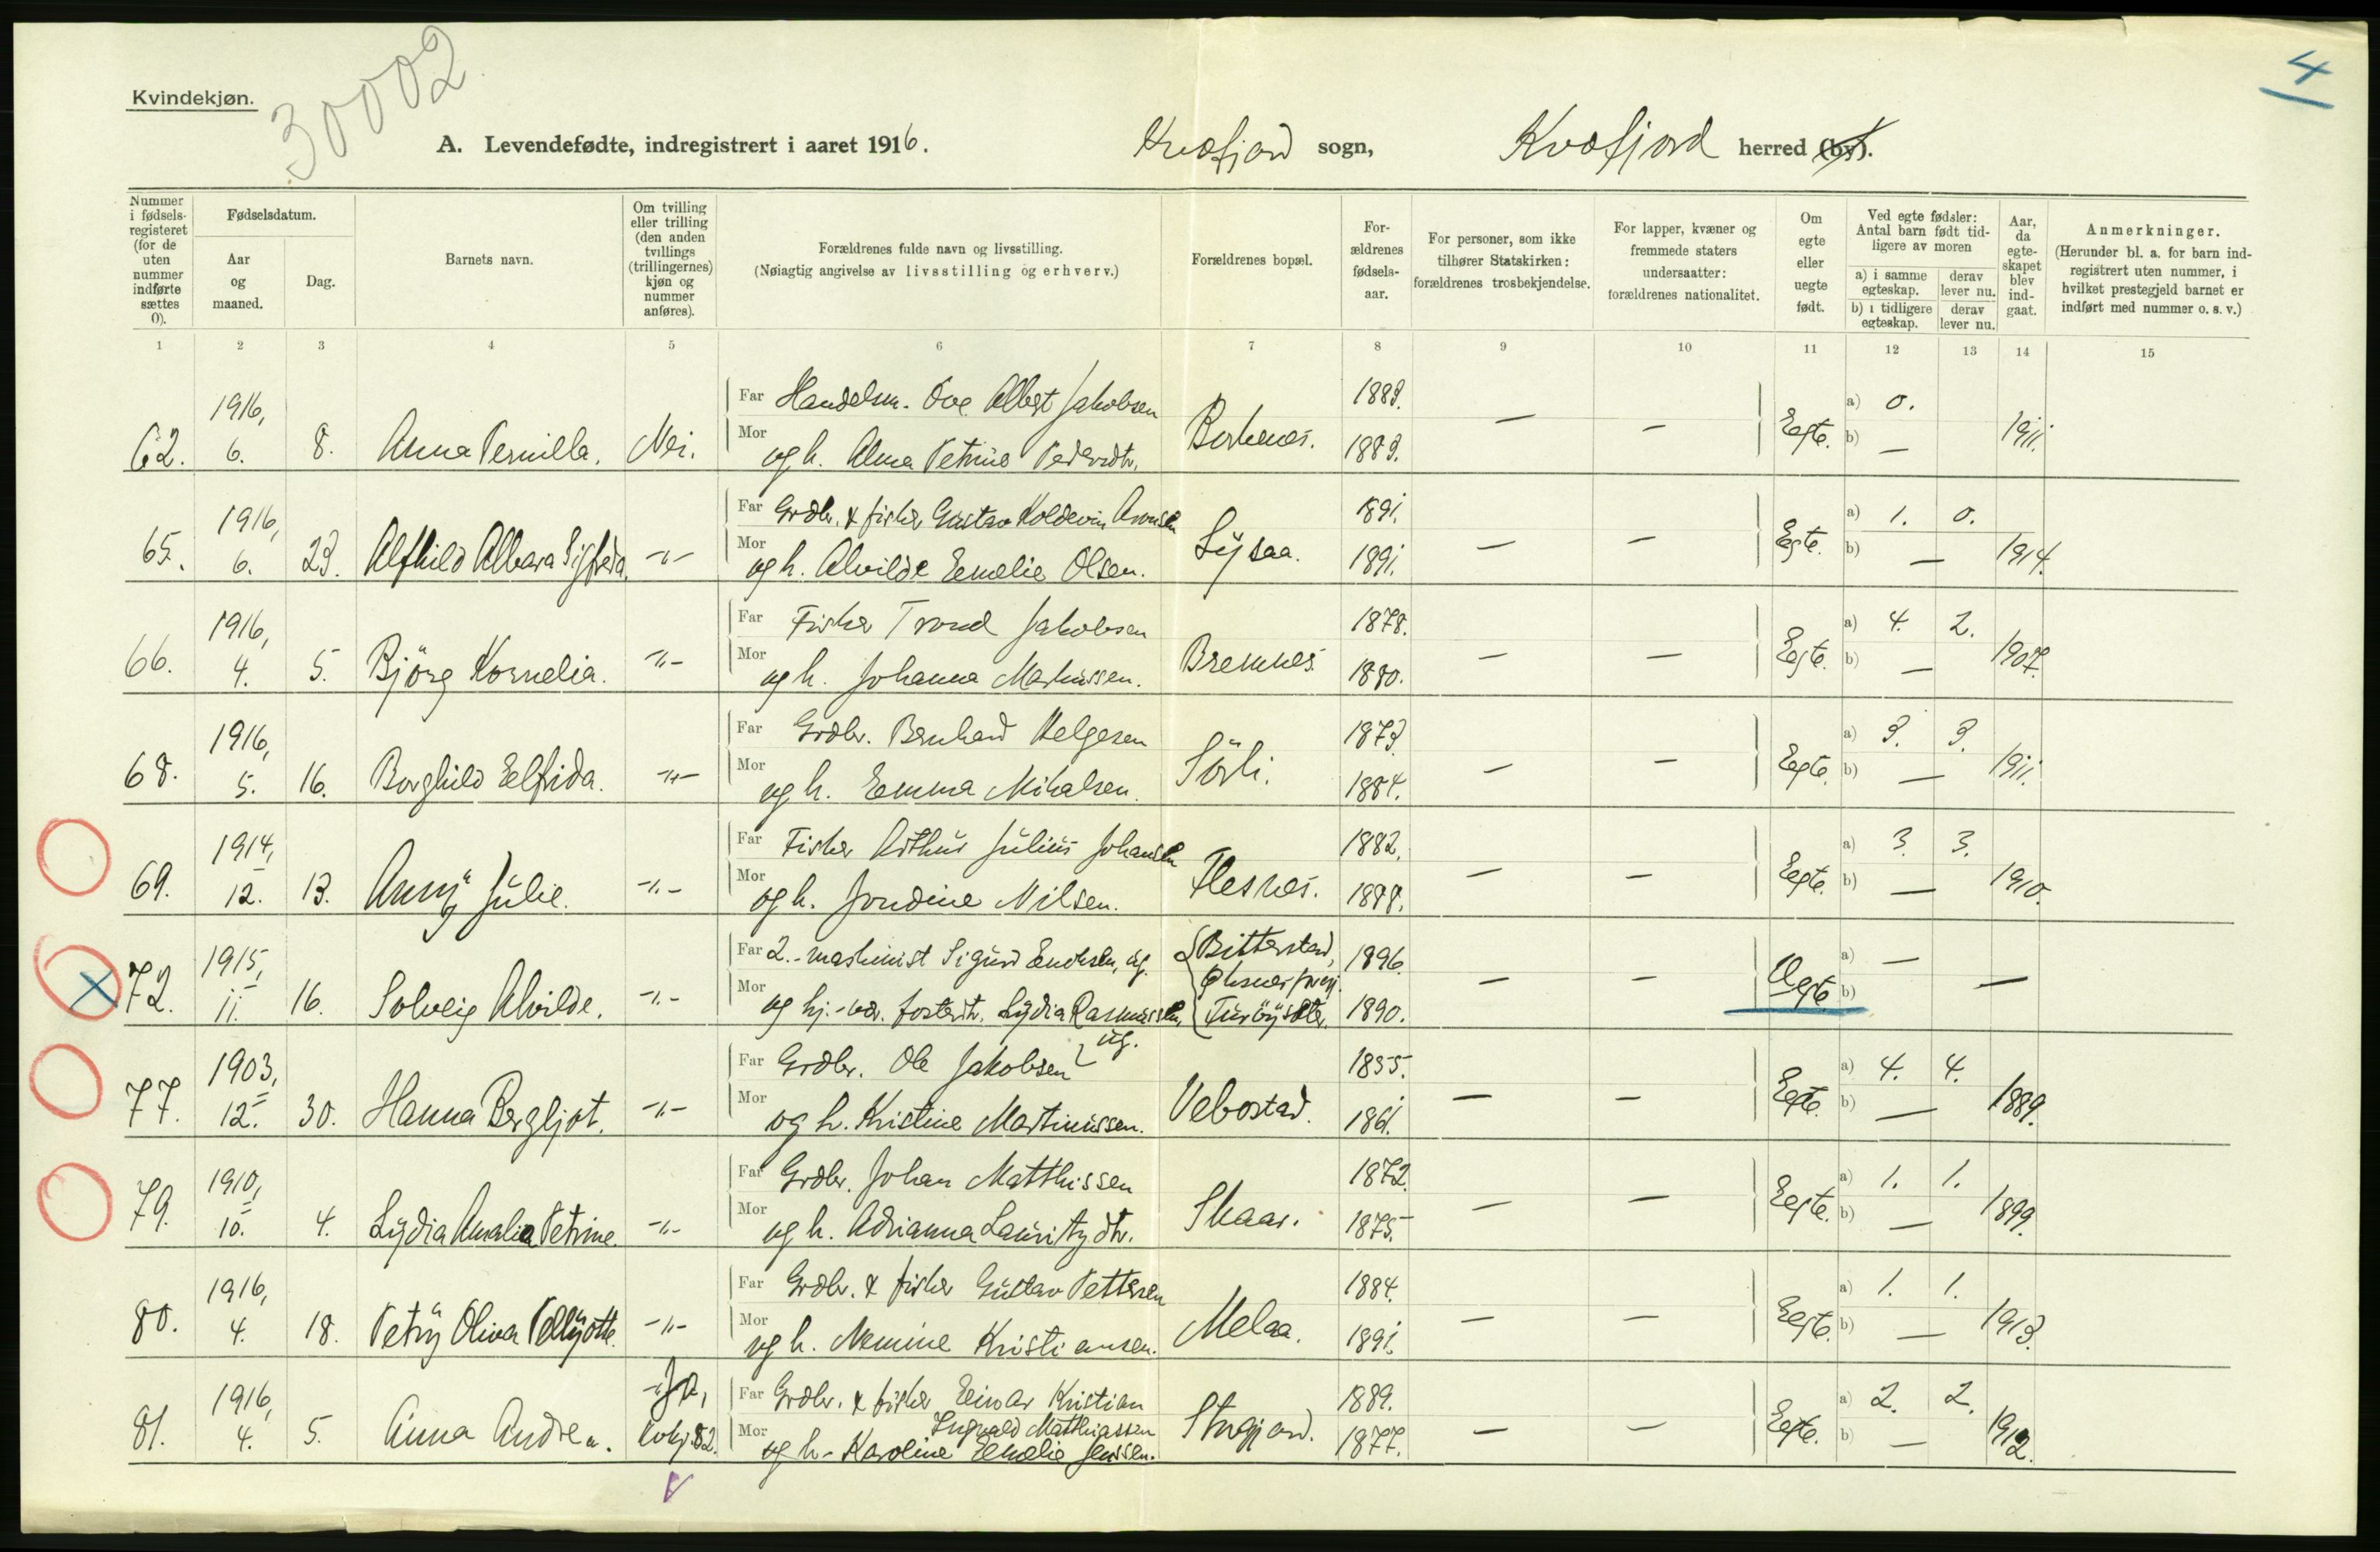 4
30002
Kvindekjøn.
A. Levendefødte, indregistrert i aaret 1916. Kvæfjord sogn, Kvæfjord herred (by).
Nummer i fødsels-registeret (for de uten nummer indførte sættes 0).
Fødselsdatum.
Aar og maaned.
Dag.
Barnets navn.
Om tvilling eller trilling (den anden tvillings (trillingernes) kjøn og nummer anføres).
Forældrenes fulde navn og livsstilling.
(Nøiagtig angivelse av livsstilling og erhverv.)
Forældrenes bopæl.
For-ældrenes fødsels-aar.
For personer, som ikke tilhører Statskirken: forældrenes trosbekjendelse.
For lapper, kvæner og fremmede staters undersaatter: forældrenes nationalitet.
Om egte eller uegte født.
Ved egte fødsler: Antal barn født tid-ligere av moren
a) i samme egteskap. derav lever nu.
b) i tidligere egteskap. derav lever nu.
Aar, da egte-skapet blev ind-gaat.
Anmerkninger.
(Herunder bl. a. for barn ind-registrert uten nummer, i hvilket prestegjeld barnet er indført med nummer o. s. v.)
1 2 3 4 5 6 7 8 9 10 11 12 13 14 15
Far Handelsm. Ove Albert Jakobsen 1883. a) 0.
62. 1916, 6. 8. Anna Pernilla. Nei. Mor og h. Alma Petrine Pedersdtr. Borkenes. 1883. — — Egte. b) — 1911.
Far Grdbr. & fisker Gustav Koldevin Aronsen 1891. a) 1. 0.
65. 1916, 6. 23. Alfhild Albara Sigfrida. -"- Mor og h. Alvilde Emelie Olsen. Lysaa. 1891. — — Egte. b) — 1914.
Far Fisker Trond Jakobsen 1878. a) 4. 2.
66. 1916, 4. 5. Björg Kornelia. -"- Mor og h. Johanna Markussen. Bremnes. 1880. — — Egte. b) — 1907.
Far Grdbr. Bernhard Helgesen 1873. a) 3. 3.
68. 1916, 5. 16. Borghild Elfrida. -"- Mor og h. Emma Mikalsen. Sörli. 1884. — — Egte. b) — 1911.
Far Fisker Arthur Julius Johansen 1882. a) 3. 3.
69. 1914, 12. 13. Anny Julie. -"- Mor og h. Jondine Nilsen. Flesnes. 1888. — — Egte. b) — 1910.
Far 2.-maskinist Sigurd Enoksen, ug. Bitterstad, Øksnes prgj. 1896. a) —
72. 1915, 11. 16. Solveig Alvilde. -"- Mor og hj.-vær. fosterdtr. Lydia Rasmussen, ug. 1890. — — Uegte b) —
Far Grdbr. Ole Jakobsen 1855. a) 4. 4.
77. 1903, 12. 30. Hanna Bergljot. -"- Mor og h. Kristine Martinussen. Vebostad. 1861. — — Egte. b) — 1889.
Far Grdbr. Johan Matthissen 1872. a) 1. 1.
79. 1910, 10. 4. Lydia Amalia Petrine. -"- Mor og h. Adrianna Lauritzdtr. Skaar. 1875. — — Egte. b) — 1899.
Far Grdbr. & fisker Gustav Pettersen 1884. a) 1. 1.
80. 1916, 4. 18. Petry Oliva -"- Mor og h. Nemine Kristiansen. Melaa. 1891. — — Egte. b) — 1913.
Far Grdbr. & fisker Einar Kristian Ingvald Matthiassen 1889. a) 2. 2.
81. 1916, 4. 5. Anna Andrea. -"- Ja, kvkj. 82. Mor og h. Karoline Emelie Jenssen. Stragjord. 1877. — — Egte. b) — 1912.